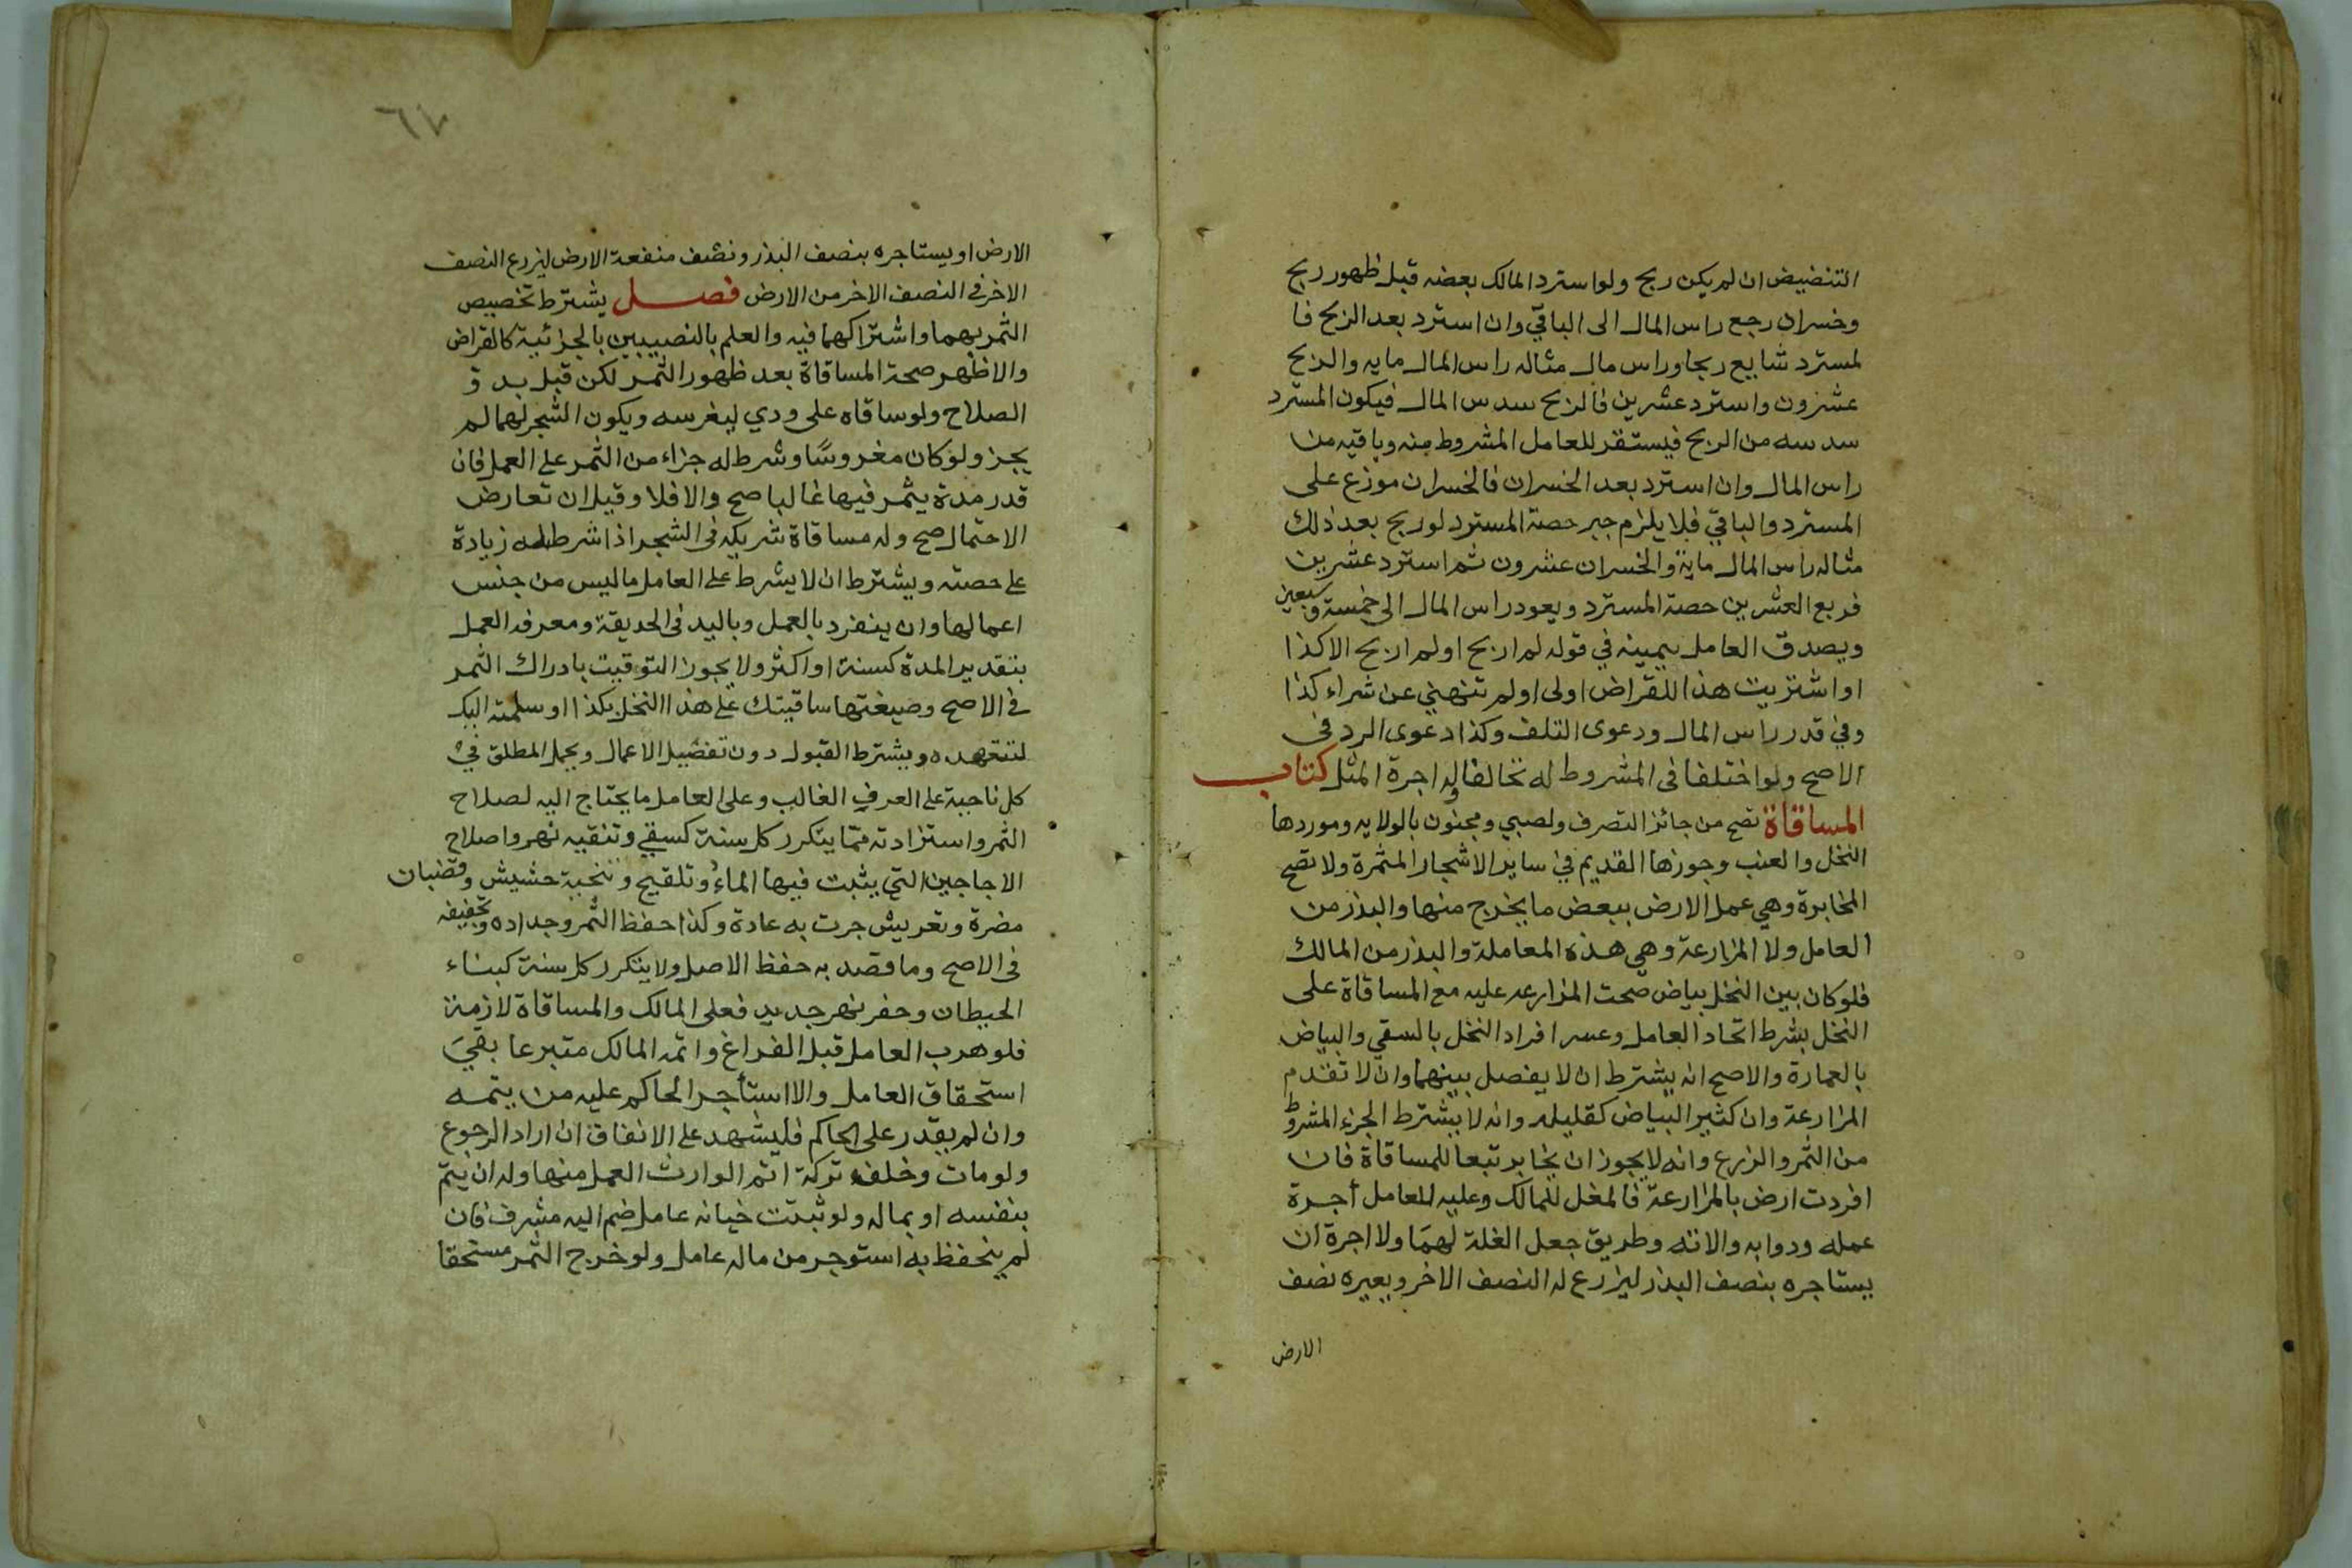 التنضيض ان لم يكن ربح ولو استرد المالك بعضه قبل ظهور ربح
وخسران رجع راس المال الى الباقي وان استرد بعد الربح فا
لمسترد شايع ربحا وراس مال مثاله راس المال مايه والربح
عشرون واسترد عشرين فالربح سدس المال فيكون المسترد
سدسه من الربح فيستقر للعامل المشروط منه وباقيه من
راس المال وان استرد بعد الخسران فالخسران موزع على
المسترد والباقي فلا يلزم جبر حصة المسترد لو ربح بعد ذلك
مثاله راس المال ماية والخسران عشرون ثم استرد عشرين
فربع العشرين حصة المسترد ويعود راس المال الى خمسة وسبعين
ويصدق العامل بيمينه في قوله لم اربح او لم اربح الا كذا
او اشتريت هذا للقراض اولى او لم تنهني عن شراء كذا
وفي قدر راس المال ودعوى التلف وكذا دعوى الرد في
الاصح ولو اختلفا في المشروط له تحالفا وله اجرة المثل كتاب
المساقاة تصح من جائز التصرف ولصبي ومجنون بالولايه وموردها
النخل والعنب وجوزها القديم في ساير الاشجار المثمرة ولا تصح
المخابرة وهي عمل الارض ببعض ما يخرج منها والبذر من
العامل ولا المزارعة وهي هذه المعاملة والبذر من المالك
فلو كان بين النخل بياض صحت المزارعه عليه مع المساقاة على
النخل بشرط اتحاد العامل وعسر افراد النخل بالسقي والبياض
بالعمارة والاصح انه يشترط ان لا يفصل بينهما وان لا تقدم
المزارعة وان كثير البياض كقليله وانه لا يشترط الجزء المشروط
من الثمر والزرع وانه لا يجوز ان يخابر تبعا للمساقاة فان
افردت ارض بالمزارعة فالمغل للمالك وعليه للعامل أجرة
عمله ودوابه والاته وطريق جعل الغلة لهما ولا اجرة ان
يستاجره بنصف البذر ليزرع له النصف الاخر ويعيره نصف
الارض
٦٧
الارض او يستاجره بنصف البذر ونصف منفعة الارض ليزرع النصف
الاخر في النصف الاخر من الارض فصل يشترط تخصيص
الثمر بهما واشتراكهما فيه والعلم بالنصيبين بالجزئية كالقراض
والاظهر صحة المساقاة بعد ظهور الثمر لكن قبل بدو
الصلاح ولو ساقاه على ودي ليغرسه ويكون الشجر لهما لم
يجز ولو كان مغروسًا وشرط له جزاء من الثمر على العمل فان
قدر مدة يثمر فيها غالبا صح والا فلا وقيل ان تعارض
الاحتمال صح وله مساقاة شريكه في الشجر اذا شرط له زيادة
على حصته ويشترط ان لا يشرط على العامل ما ليس من جنس
اعمالها وان ينفرد بالعمل وباليد في الحديقة ومعرفه العمل
بتقدير المدة كسنة او اكثر ولا يجوز التوقيت بادراك الثمر
في الاصح وصيغتها ساقيتك على هذا النخل بكذا او سلمته اليك
لتتعهده ويشترط القبول دون تفصيل الاعمال ويحمل المطلق في
كل ناحية على العرف الغالب وعلى العامل ما يحتاج اليه لصلاح
الثمر واستزادته مما يتكرر كل سنة كسقي وتنقيه نهر واصلاح
الاجاجين التي يثبت فيها الماء وتلقيح وتنحية حشيش وقضبان
مضرة وتعريش جرت به عادة وكذا حفظ الثمر وجداده وتجفيفه
في الاصح وما قصد به حفظ الاصل ولا يتكرر كل سنة كبناء
الحيطان وحفر نهر جديد فعلى المالك والمساقاة لازمة
فلو هرب العامل قبل الفراغ واتمه المالك متبرعا بقي
استحقاق العامل والا استأجر الحاكم عليه من يتمه
وان لم يقدر على الحاكم فليشهد على الانفاق ان اراد الرجوع
ولو مات وخلف تركة اتم الوارث العمل منها وله ان يتم
بنفسه او بماله ولو ثبتت خيانه عامل ضم اليه مشرف فان
لم يتحفظ به استوجر من ماله عامل ولو خرج الثمر مستحقا